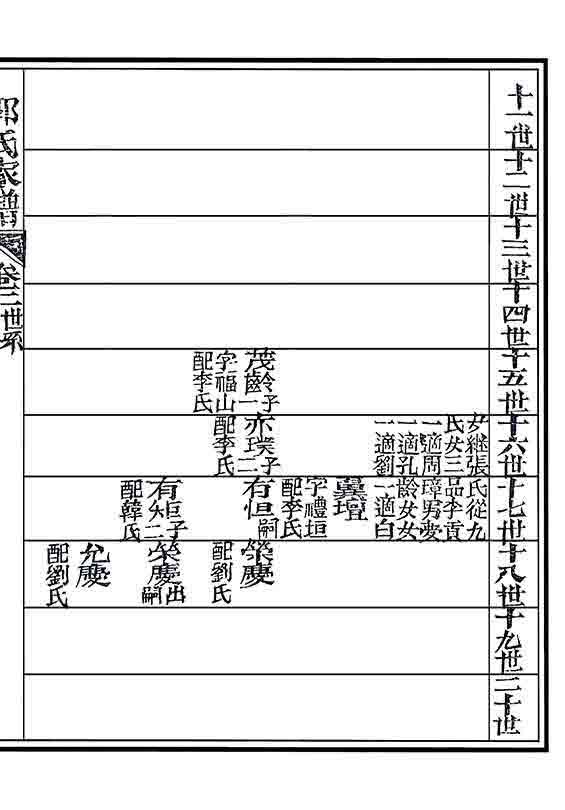 十一世
十二世
十三世
十四世
十五世
十六世
十七世
十八世
十九世
二十世
茂齡 子一
字福山
配李氏
女繼張
氏女三
一適周
一適孔
一適劉
亦璞 子二
配李氏
氏從九
品李貢
璋男愛
齡女女
一適白
壇
字禮垣
配李氏
有恒 嗣
有矩 子二
配韓氏
榮慶
配劉氏
榮慶 出嗣
允慶
配劉氏
郭氏家譜
卷
世系